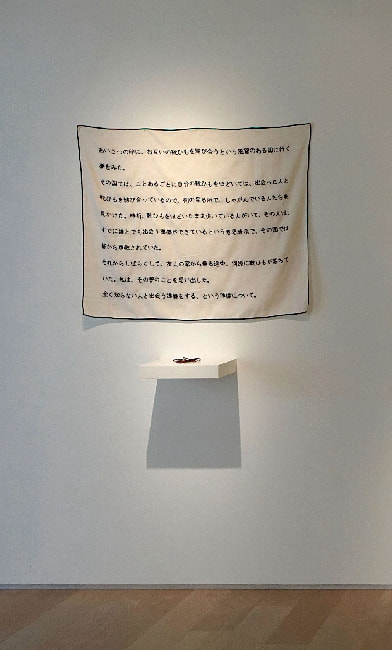 あいさつの時に、お互いの靴ひもを結び合うという風習のある国に行く
夢をみた。
その国では、ことあるごとに自分の靴ひもをほどいては、出会った人と
靴ひもを結び合っているので、街の至る所で、しゃがんでいる人たちを
見かけた。時折、靴ひもをほどいたまま歩いている人がいて、その人は、
すぐに誰とでも出会う準備ができているという意思表示で、その国では
皆から尊敬されていた。
それからしばらくして、友人の家から帰る途中、道路に靴ひもが落ちて
いた。私は、その夢のことを思い出した。
全く知らない人と出会う準備をする、という準備について。